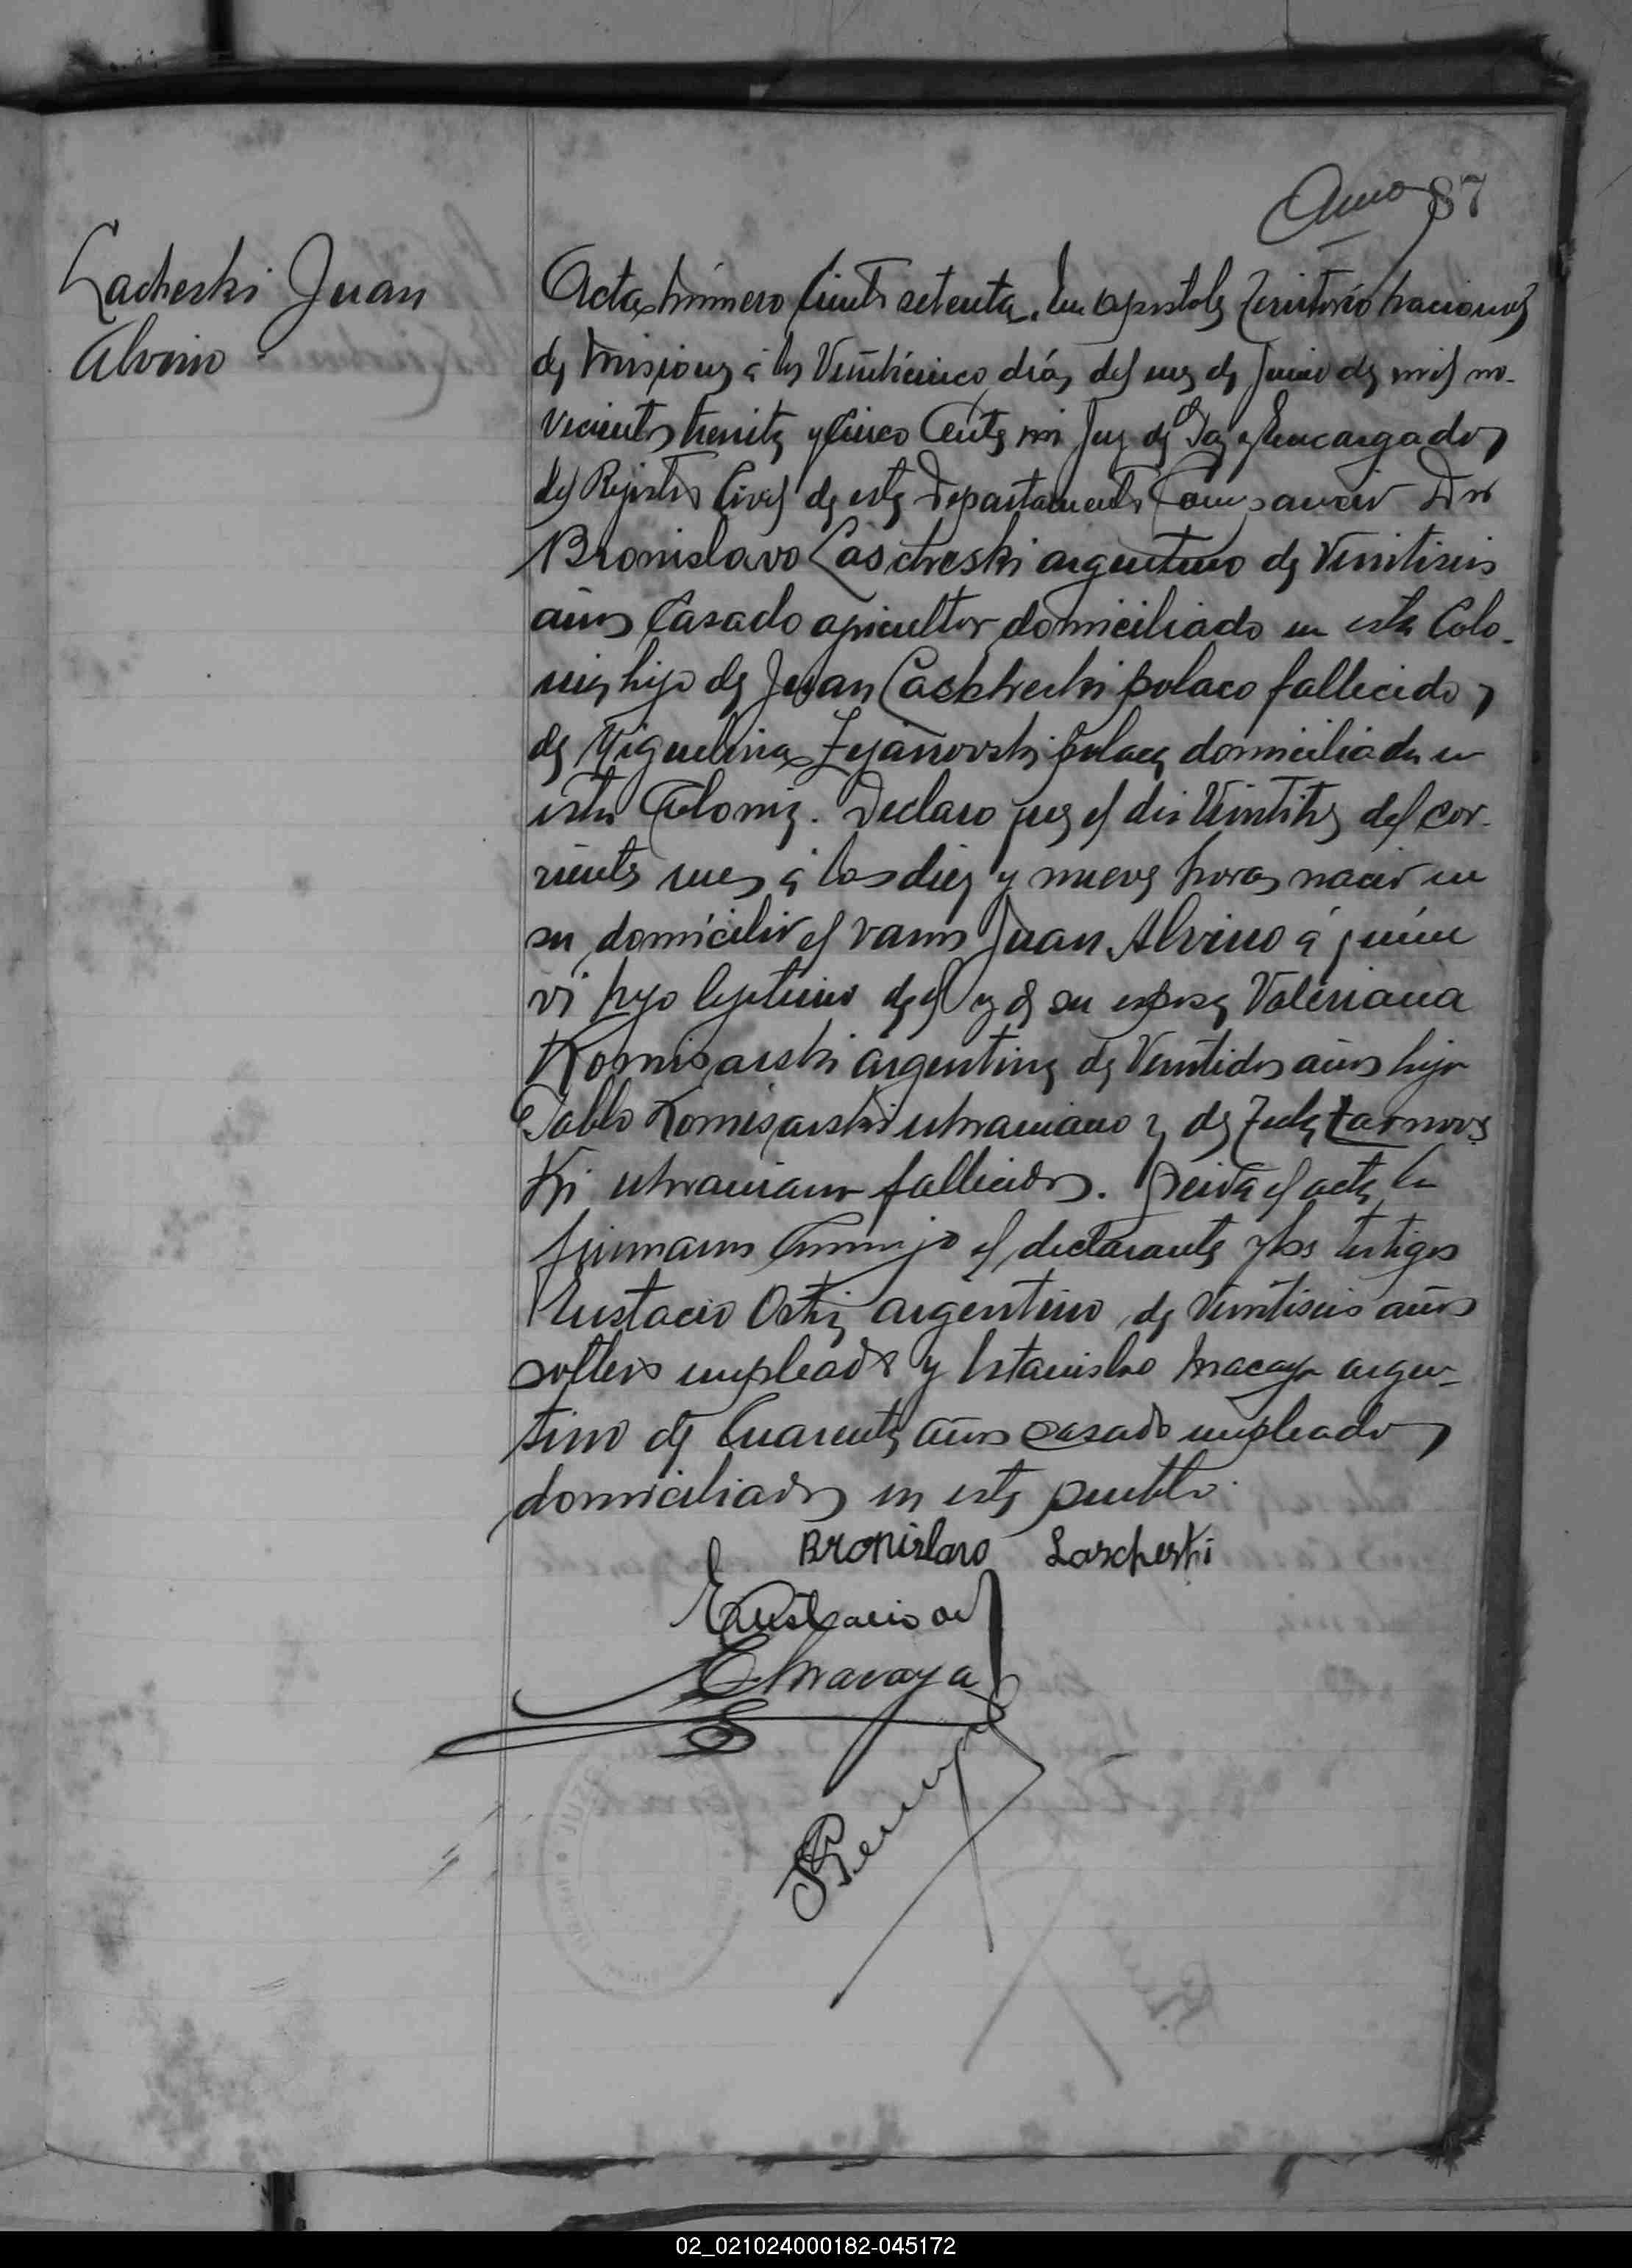 87
Lacheski Juan
Alvino
Acta número Ciento setenta. En Apostoles Territorio Nacional
de Misiones á los Veinticinco días del mes de Junio de mil no-
vecientos treinta y Cinco Ante mi Juez de Paz y Encargado
del Rejistro Civil de este Departamento Comparecio Don
Bronislavo Lascheski argentino de Veintiseis
años Casado agricultor domiciliado en esta Colo-
nia, hijo de Juan polaco fallecido y
de Miguelina Zejanovski polaca domiciliada en
esta Colonia. Declaro que el dia Veintitres del cor-
riente mes á las diez y nueve horas nacio en
su domicilio el varon Juan Alvino á quien
vi hijo lejitimo de el y de su esposa Valeriana
Komisarski argentina de Veintidos años hija
Pablo Komisarski ukraniano y de Tarnovs
Ki ukraniana fallecidos. Leida el acta la
firmaron Conmigo el declarante y los testigos
Eustacio Ortiz argentino de Veintiseis años
soltero empleado y Estanislao Macaya argen-
tino de Cuarenta años casado empleado
domiciliados en este pueblo.
Bronislavo Lascheski
Eustacio
E Macaya